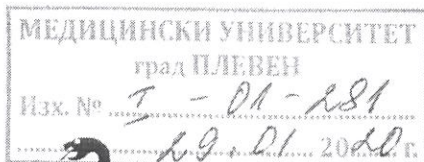 МЕДИЦИНСКИ УНИВЕРСИТЕТ
град ПЛЕВЕН
Изх. № I - 01 - 281
29.01 2020 г.